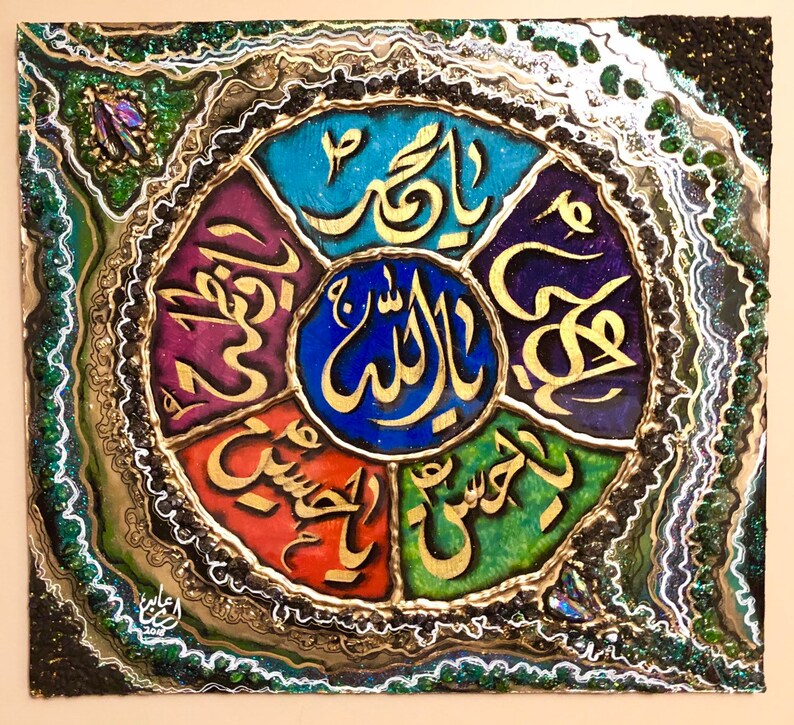 يا الله ج
يا محمد ص
يا علي ع
يا حسن ع
يا حسين ع
يا فاطمة ع
2018